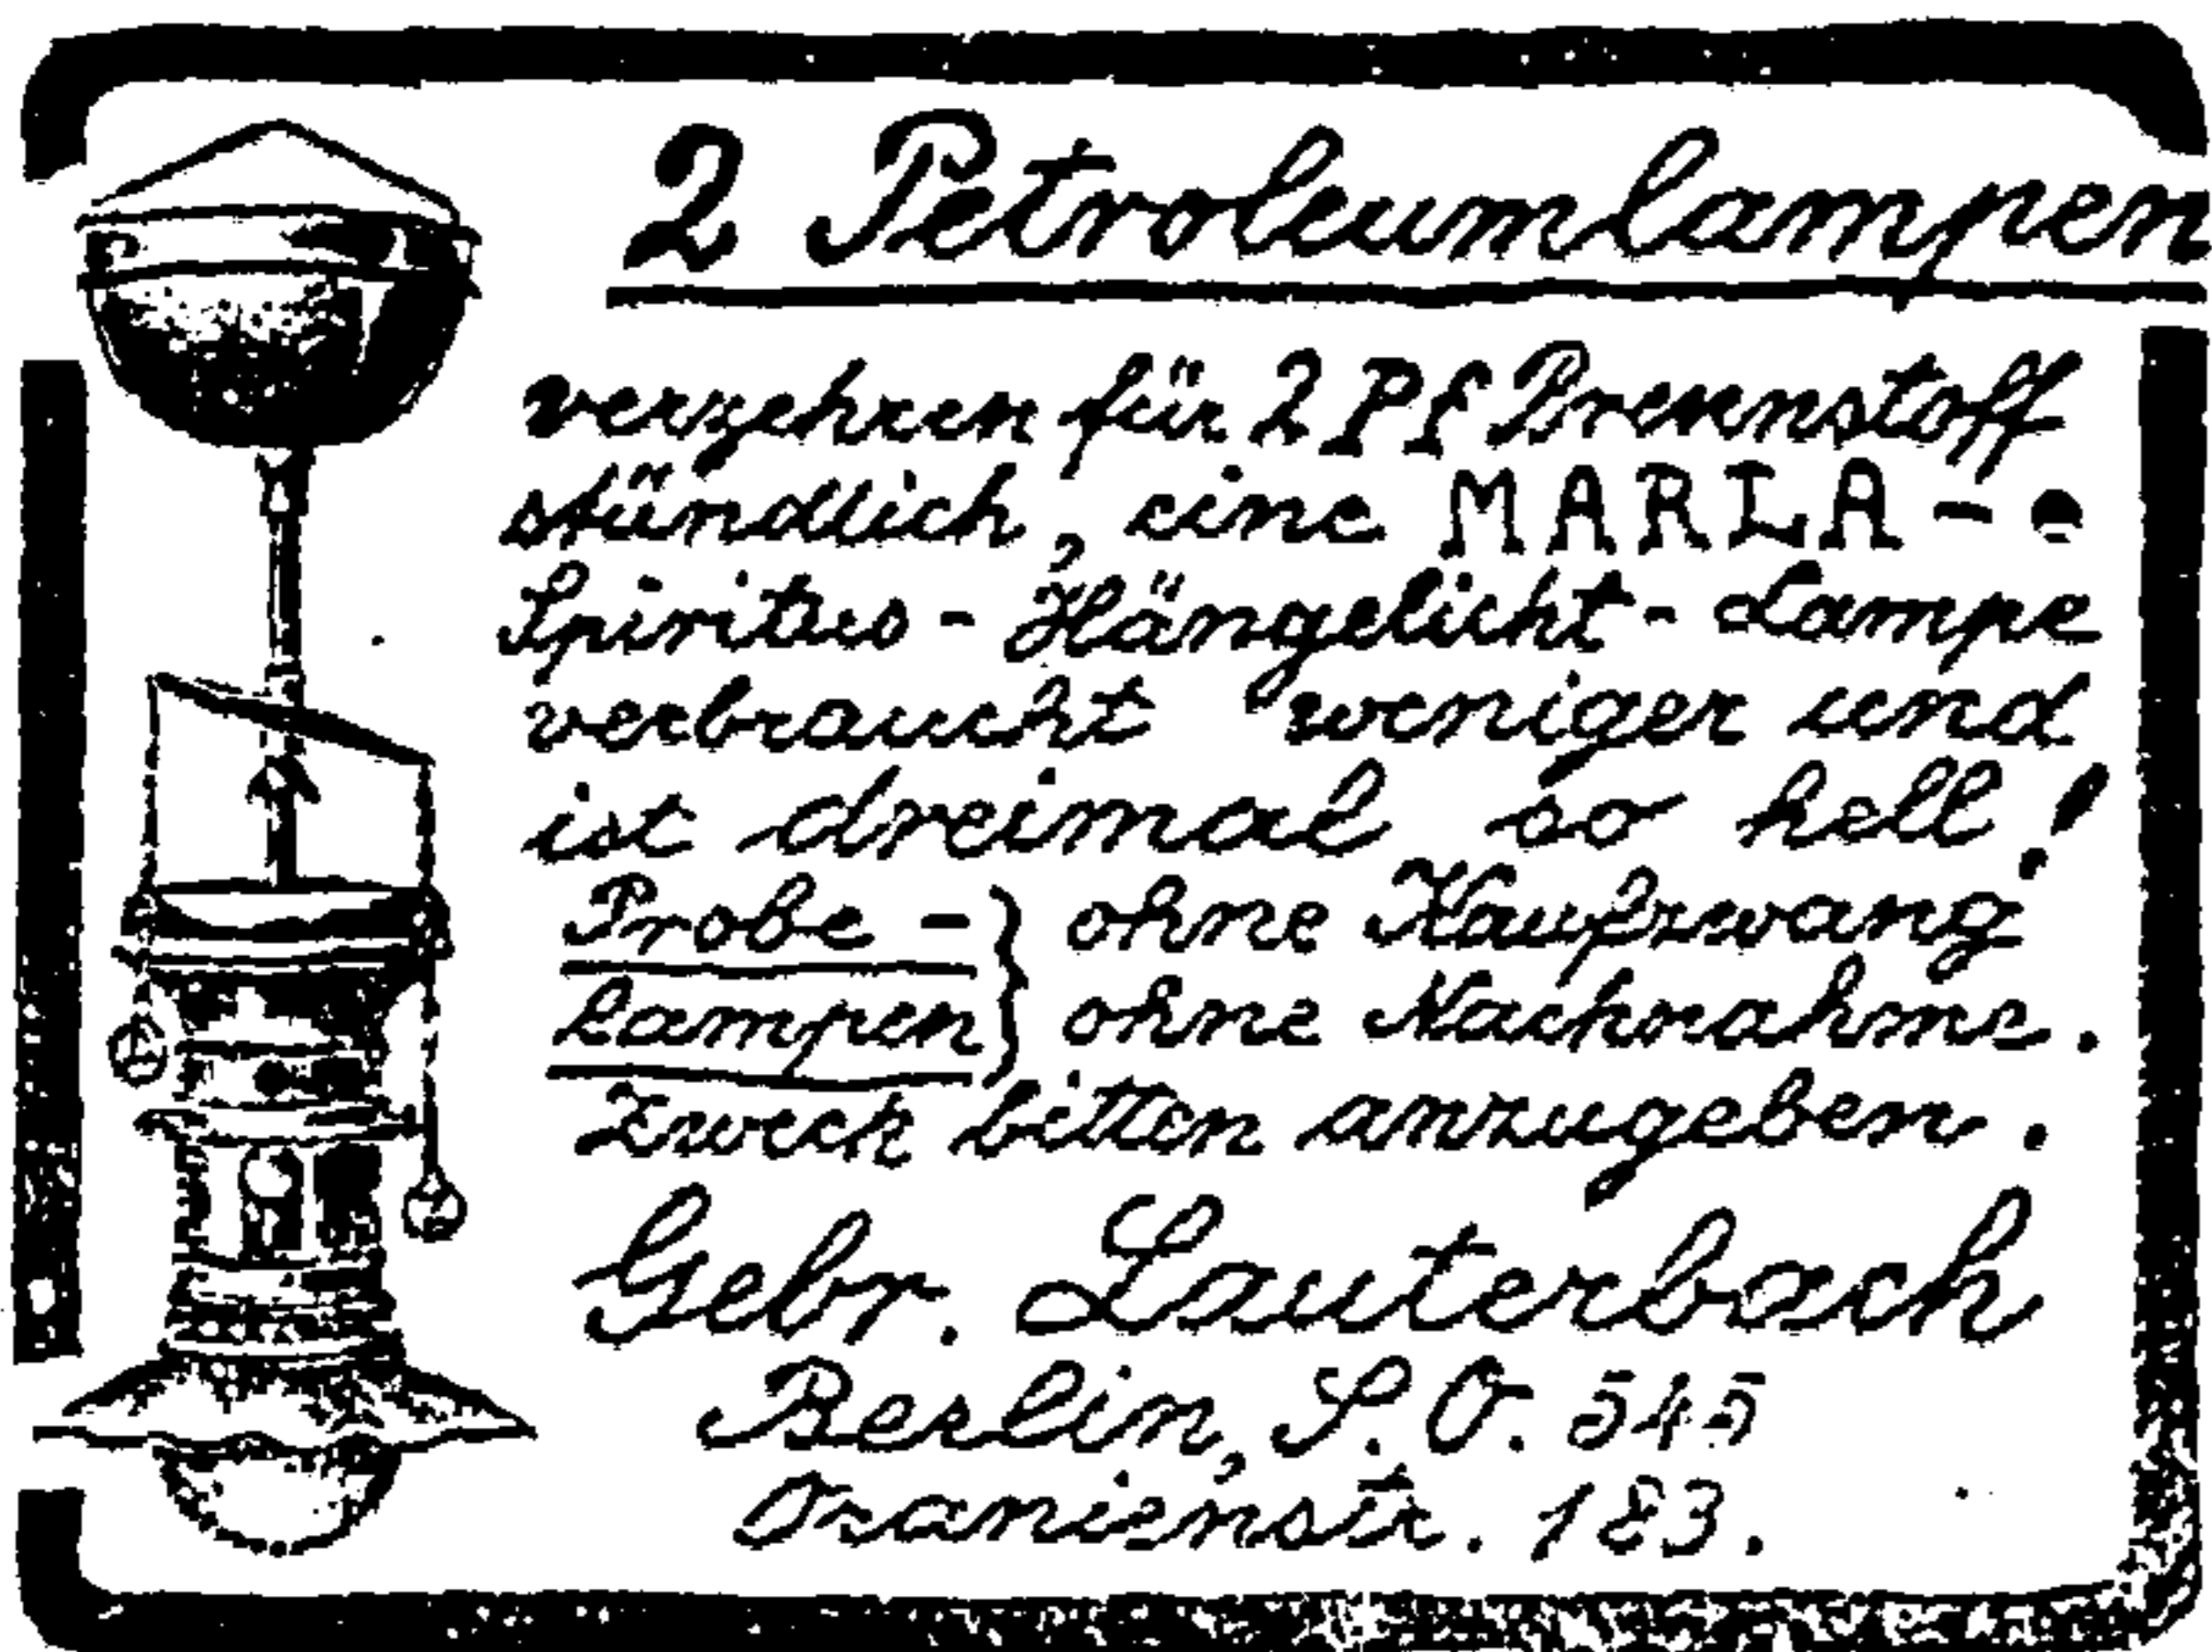 2 Petroleumlampen
verzehren für 2 Pf Brennstoff
stündlich, eine MARLA-
Spiritus-Hängelicht-Lampe
verbraucht weniger und
ist dreimal so hell!
Probe- } ohne Kaufzwang
Lampen } ohne Nachnahme.
Zweck bitten anzugeben.
Gebr. Lauterbach
Berlin, S. O. 545
Oranienstr. 183.